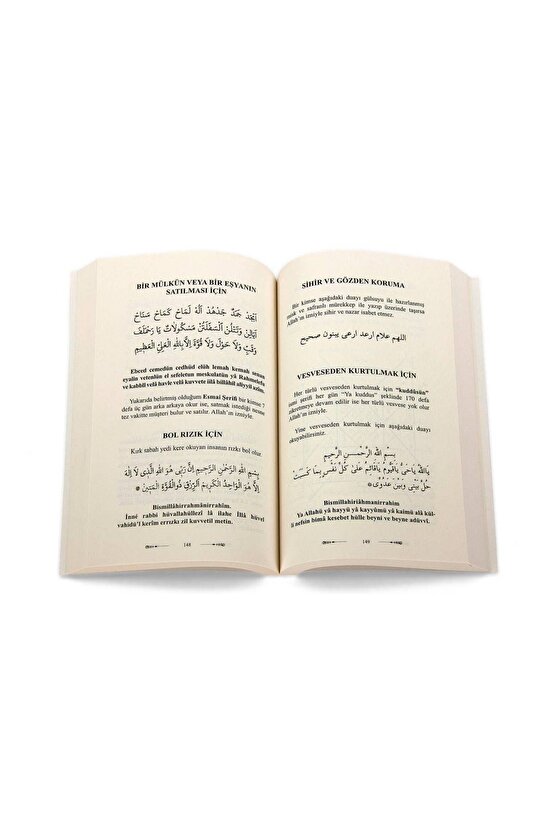 BİR MÜLKÜN VEYA BİR EŞYANIN
SATILMASI İÇİN
Ebced cemedün cedhüd elüh lemah kemah semam
eyalin vetenlün el sefeletun meskulatun yâ Rahmelefin
ve kabbül velâ havle velâ kuvvete illâ billâhil aliyyil azîm.
Yukarıda belirtmiş olduğum Esmai Şerifi bir kimse 7
defa üç gün arka arkaya okur ise, satmak istediği nesneye
tez vakitte müşteri bulur ve satılır. Allah'ın izniyle.
BOL RIZIK İÇİN
Kırk sabah yedi kere okuyan insanın rızkı bol olur.
بِسْمِ اللّٰهِ الرَّحْمٰنِ الرَّحِيمِ اِنَّ رَبِّى هُوَ اللّٰهُ الَّذِى لَا اِلٰهَ
اِلَّا هُوَ الْوَاحِدُ الْكَرِيمُ الرِّزْقِ ذُوالْقُوَّةِ الْمَتِينَ
Bismillâhirrahmânirrahîm.
İnné rabbi hüvallahüllezî lâ ilahe İllâ hüvel
vahidu'l kerîm errızkı zil kuvvetil metin.
148
SİHİR VE GÖZDEN KORUMA
Bir kimse aşağıdaki duayı gülsuyu ile hazırlanmış
misk ve safranlı mürekkep ile yazıp üzerinde taşırsa
Allah'ın izniyle sihir ve nazar isabet etmez.
اللهم علام ارعد ارعى يبنون صحيح
VEŞVESEDEN KURTULMAK İÇİN
Her türlü vesveseden kurtulmak için "kuddûsün"
ismi şerifi her gün "Ya kuddus" şeklinde 170 defa
zikretmeye devam edilir ise her türlü vesvese yok olur
Allah'ın izniyle.
Yine vesveseden kurtulmak için aşağıdaki duayı
okuyabilirsiniz.
بِسْمِ اللّٰهِ الرَّحْمٰنِ الرَّحِيمِ
يَااَللّٰهُ يَاحَىُّ يَاقَيُّومُ يَاقَائِمُ عَلٰى كُلِّ نَفْسٍ بِمَا كَسَبَتْ
حُلْ بَيْنِى وَبَيْنَ عَدُوِّى
Bismillahirrahmânirrahim
Ya Allahü yâ hayyü yâ kayyümü yâ kaimü alâ kül-
li nefsin bimâ kesebet hülle beyni ve beyne adüvvî.
149